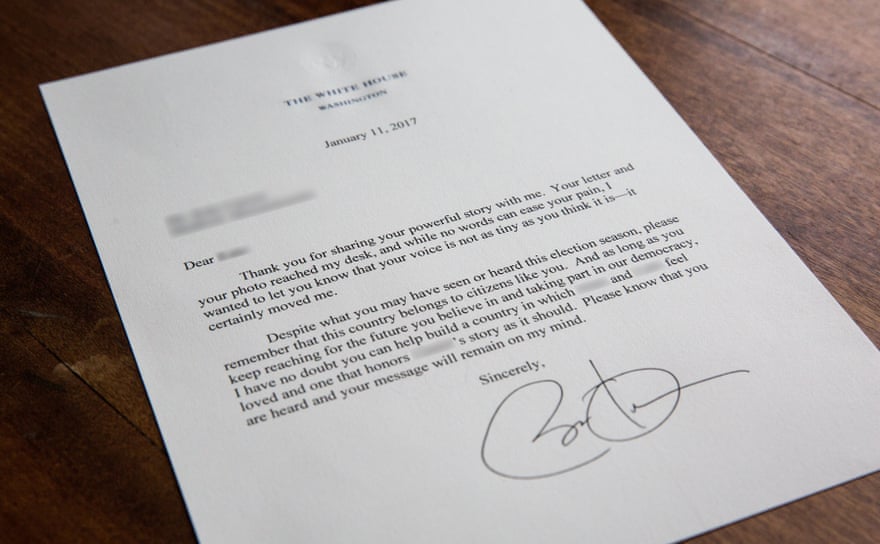 THE WHITE HOUSE
WASHINGTON
January 11, 2017
Dear
Thank you for sharing your powerful story with me. Your letter and
your photo reached my desk, and while no words can ease your pain, I
wanted to let you know that your voice is not as tiny as you think it is—it
certainly moved me.
Despite what you may have seen or heard this election season, please
remember that this country belongs to citizens like you. And as long as you
keep reaching for the future you believe in and taking part in our democracy,
I have no doubt you can help build a country in which and feel
loved and one that honors 's story as it should. Please know that you
are heard and your message will remain on my mind.
Sincerely,